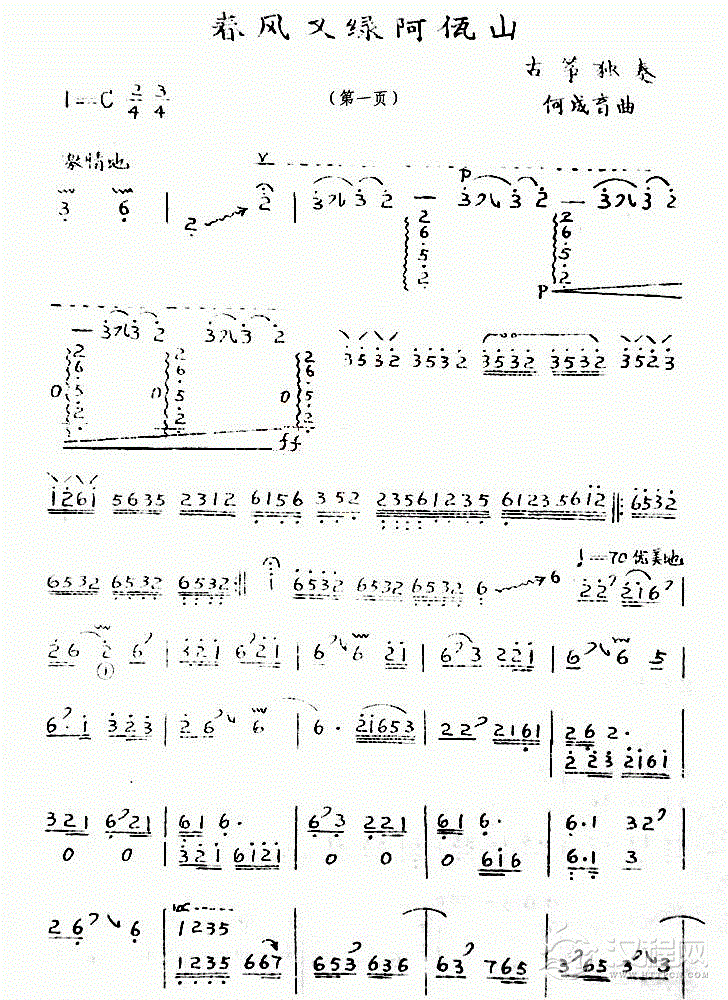 春风又绿阿佤山
古筝独奏
1=C 2/4 3/4
（第一页）
何成育曲
激情地
3 6 | 2 2 | 3 3 2 — 3 3 2 — 3 3 2
p
2 6 5 2
2 6 5 2
p
— 3 3 2 3 3 2
3532 3532 3532 3532 3523
0 2652 0 2652 0 2652
ff
1261 5635 2312 6156 352 23561235 61235612 6532
6532 6532 6532 1 6532 6532 6532 6 6 22 216
=70优美地
26 2 6 | 321 621 | 6 6 21 | 63 221 | 6 6 5
6 1 323 | 26 6 | 6. 21653 | 22 2161 | 262.
2 23 2161
321 621 | 61 6. | 63 221 | 61 6. | 6.1 32
0 0 | 321 6121 | 0 0 | 0 616 | 6.1 3
26 6 | 1235
1235 667 | 653 636 | 63 765 | 365 3 3
汉程网